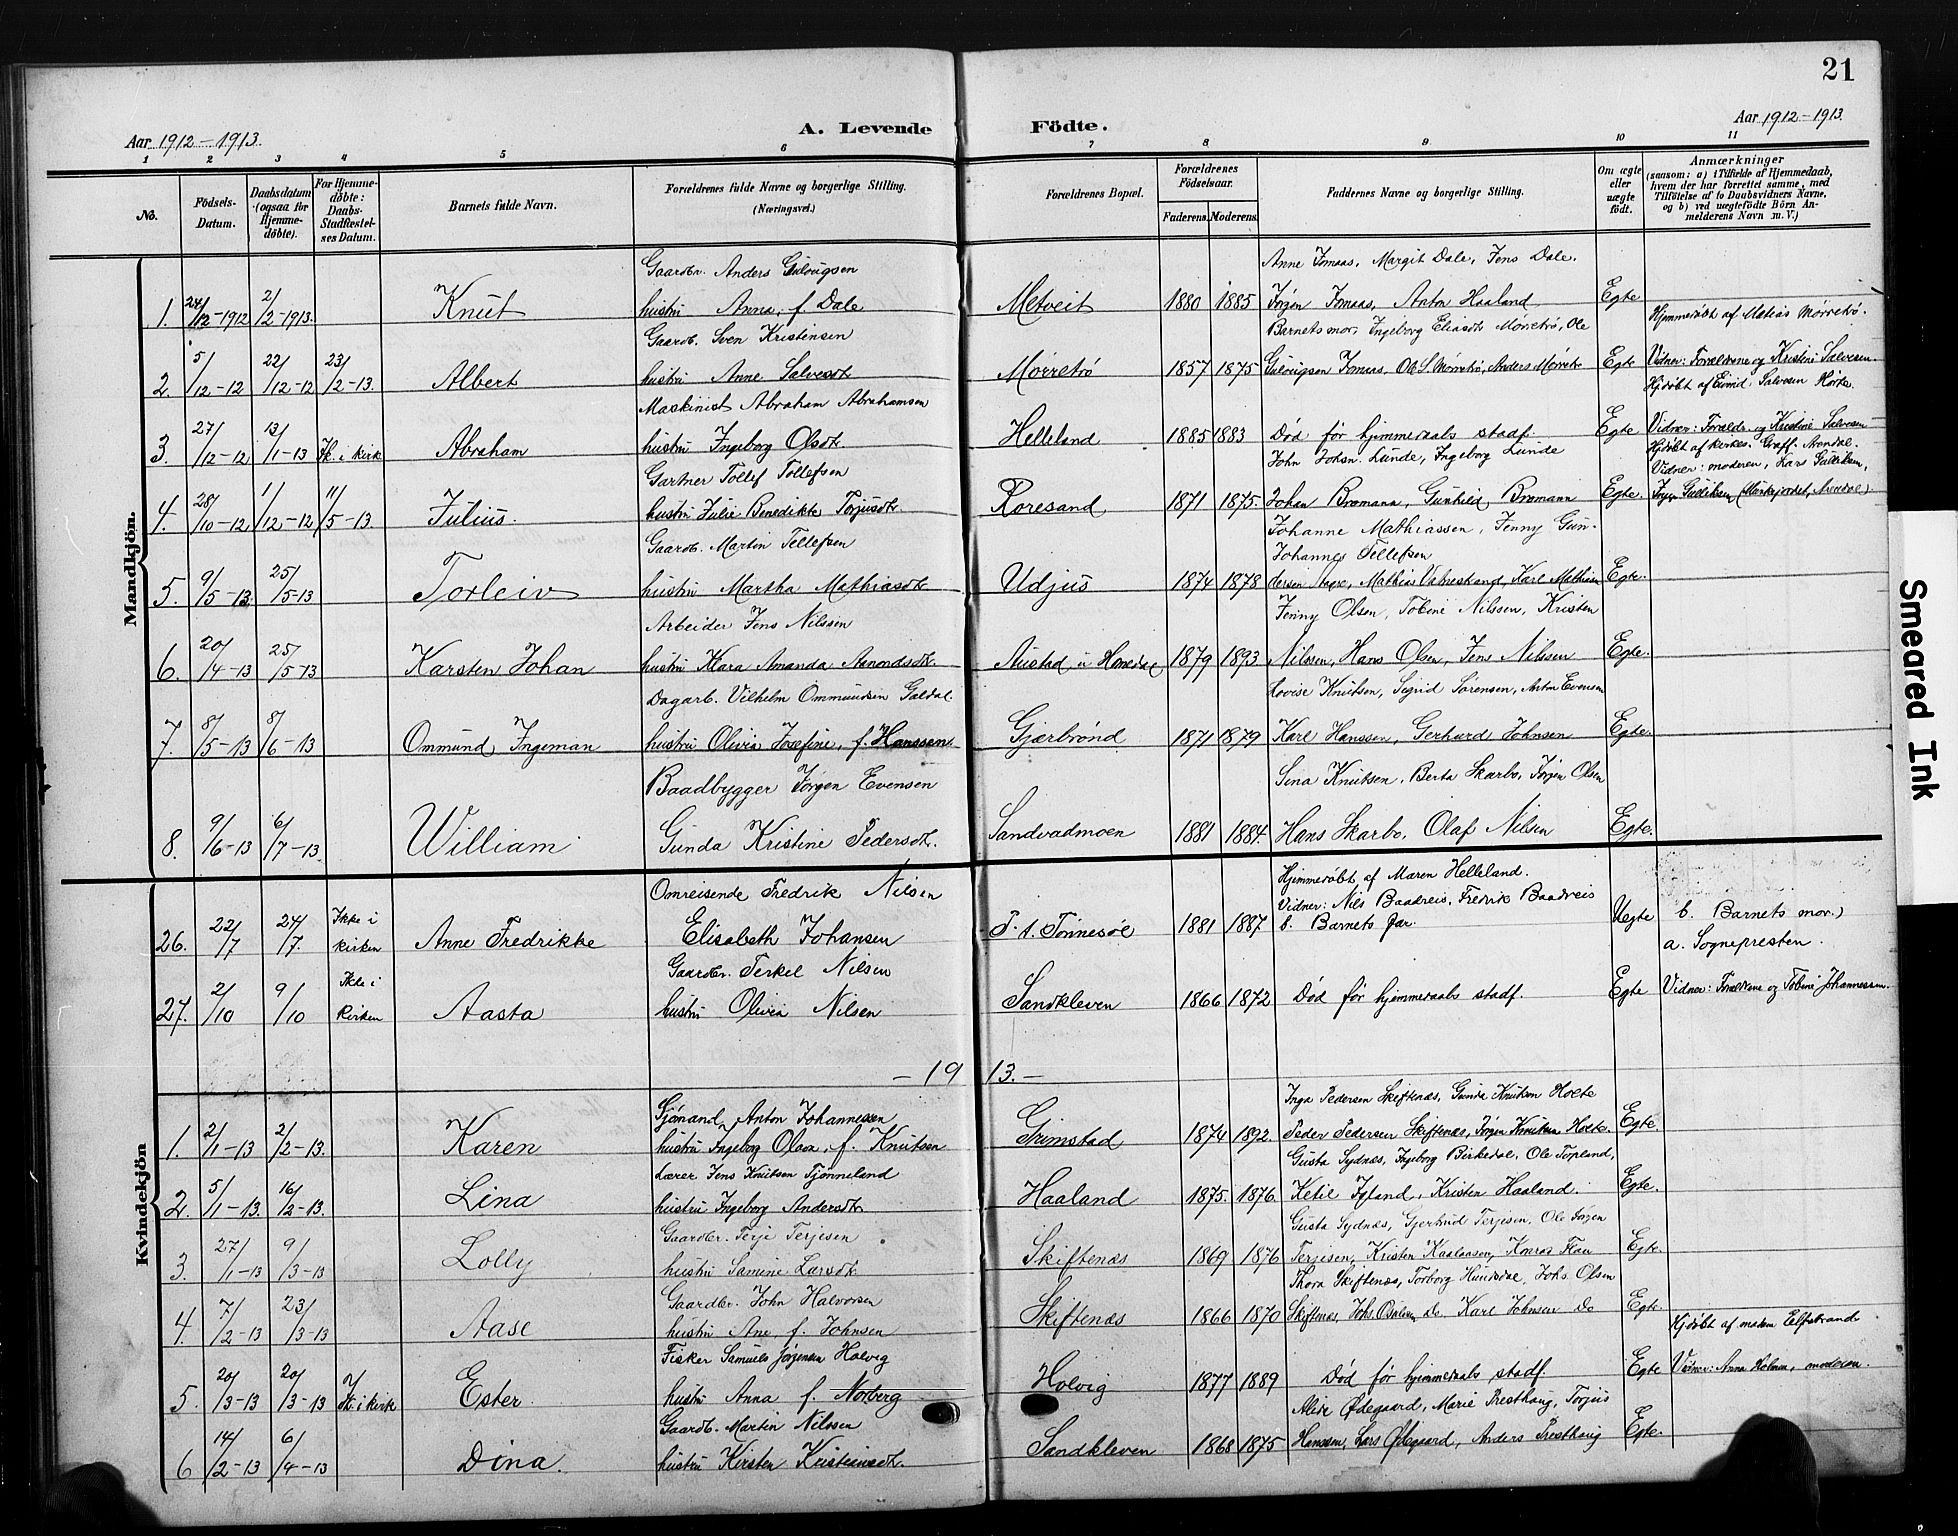 21
Aar 1912-1913.
A. Levende Födte.
Aar 1912-1913.
1 2 3 4 5 6 7 8 9 10 11
No.
Födsels-Datum.
Daabsdatum (ogsaa for Hjemme-döbte).
For Hjemme-döbte: Daabs-Stadfæstel-ses Datum.
Barnets fulde Navn.
Forældrenes fulde Navne og borgerlige Stilling. (Næringsvei.)
Forældrenes Bopæl.
Forældrenes Födselsaar.
Faderens. Moderens.
Faddernes Navne og borgerlige Stilling.
Om ægte eller uægte födt.
Anmærkninger
(saasom: a) i Tilfælde af Hjemmedaab, hvem der har forrettet samme, med Tilföielse af to Daabsvidners Navne, og b) ved uægtefödte Börn An-melderens Navn m. V.)
Mandkjön.
Gaardbr. Anders Gulougsen
Anne Fomaas, Margit Dale, Jens Dale.
1. 24/12-1912 2/2-1913. Knut hustru Anna, f. Dale Metveit 1880 1885 Jørgen Fomaas, Anton Haaland Egte
Gaardb. Sven Kristensen
Barnets mor, Ingeborg Eliasdt. Mørretrø, Ole
Hjemmedøbt af Matias Mørretrø.
2. 5/12-12 22/12-12 23/2-13. Albert hustru Anne Salvesdt. Mørretrø 1857 1875 Gulougsen Fomaas, Ole S. Mørretrø, Anders Mørretrø Egte
Vidner: Forældrene og Kristine Salvesen.
Maskinist Abraham Abrahamsen
Hjdøbt af Eivind Salvesen
3. 27/12-12 13/1-13 Ik. i kirk Abraham hustru Ingeborg Olsdt. Helleland 1885 1883 Død før hjemmedaabs stadf. Egte
Vidner: Forældre og Kristine Salvesen
Gartner Tollef Tollefsen
John Johsn. Lunde, Ingeborg Lunde
Hjdøbt af kirkes. Graff. Arendal.
Vidner: moderen, Lars Gulliksen,
4. 28/10-12 1/12-12 11/5-13 Julius. hustru Julie Benedikte Torjusdt. Roresand 1871 1875. Johan Bromann, Gunhild Bromann Egte.
Gulliksen Arendal)
Gaardb. Martin Tellefsen
Johanne Mathiassen, Jenny Gun-
Johannes Tellefsen
5. 9/5-13. 25/5-13 Torleiv hustru Martha Mathiasdt. Udjus 1874 1878 dersen Mathias Karl Mathias Egte.
Arbeider Jens Nilssen
Jenny Olsen, Tobine Nilssen, Kristen
6. 20/4-13 25/5-13 Karsten Johan hustru Klara Amanda Aanondsdt. Austad 1879 1893 Nilssen, Hans Olsen, Jens Nilssen Egte.
Dagarb. Vilhelm Ommundsen Galdal.
Lovise Knutsen, Sigrid Sørensen, Anton Evensen
7. 8/5-13 8/6-13 Ommund Ingeman hustru Olivia Josefine, f. Hanssen. Gjærbrønd 1871 1879 Karl Hanssen, Gerhard Johnsen Egte.
Baadbygger Jørgen Evensen
Sina Knutsen, Berta Skarbo, Jørgen Olsen
8. 9/6-13 6/7-13. William Gunda Kristine Pedersdt. Sandvadmoen 1881 1884. Hans Skarbo, Olaf Nilsen Egte.
Omreisende Fredrik Nilsen
Hjemmedøbt af Maren Helleland.
Vidner: Nils Baadreis, Fredrik Baadreis
26. 22/7 24/7. Ikke i kirken Anne Fredrikke Elisabeth Johansen P. t. Tønnesøl 1881 1887 b. Barnets far. Uegte b. Barnets mor.)
a. Sognepresten.
Gaardbr. Terkel Nilsen
27. 2/10 9/10 Ikke i kirken Aasta hustru Olivia Nilsen Sandkleven 1866 1872 Død før hjemmedaabs stadf. Egte Vidner: Forældrene og Tobine Johannessen.
– 1913. –
Kvindekjön
Sjømand, Anton Johannessen
Inga Pedersen Skiftenæs, Gunda Knutsen Holte
1. 2/1-13 2/2-13. Karen hustru Ingeborg Olava, f. Knutsen Grimstad 1874 1892. Peder Pedersen Skiftenæs, Jørgen Knutsen Holte. Egte.
Lærer Jens Knutsen Tjønneland
Gusta Sydnæs, Ingeborg Birkedal, Ole Topland,
2. 5/1-13. 16/2-13. Lina hustru Ingeborg Andersdt. Haaland 1875. 1876. Ketil Igland, Kristen Haaland. Egte.
Gaardbr. Terje Terjesen
Gusta Sydnæs, Gjertrud Terjesen, Ole Jørgen
3. 27/1-13 9/3-13 Lolly hustru Samine Larsdt. Skiftenæs 1869 1876 Terjesen, Kristen Konrad Flau Egte.
Gaardbr. John Halvorsen
Thora Skiftenæs, Torborg Hundsdal, Johs. Olsen
4. 7/2-13 23/3-13 Aase hustru Ane, f. Johnsen Skiftenæs 1866 1870 Skiftenæs, Johs. do. Karl Johnsen do Egte.
Hjdøbt af madam Elfstrand
Fisker Samuel Jørgensen Holvig
5. 20/3-13 20/3-13 Ik. i kirk Ester hustru Anna f. Norberg Holvig 1877 1889 Død før hjemmedaabs stadf. Egte Vidner: Anna Holman, moderen.
Gaardb. Martin Nilssen
Alida Ødegaard, Marie Presthaug, Torjus
6 14/2-13 6/4-13 Dina. hustru Kirsten Kristiansdt. Sandkleven 1868 1875 Hanssen, Lars Ødegaard, Anders Presthaug Egte.
Smeared Ink